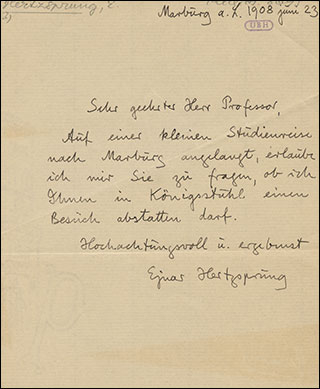 Hertzsprung, E
Marburg a. L. 1908 juni 23
UBH
Sehr geehrter Herr Professor,
Auf einer kleinen Studienreise
nach Marburg angelangt, erlaube
ich mir Sie zu fragen, ob ich
Ihnen in Königsstuhl einen
Besuch abstatten darf.
Hochachtungsvoll u. ergebenst
Ejnar Hertzsprung